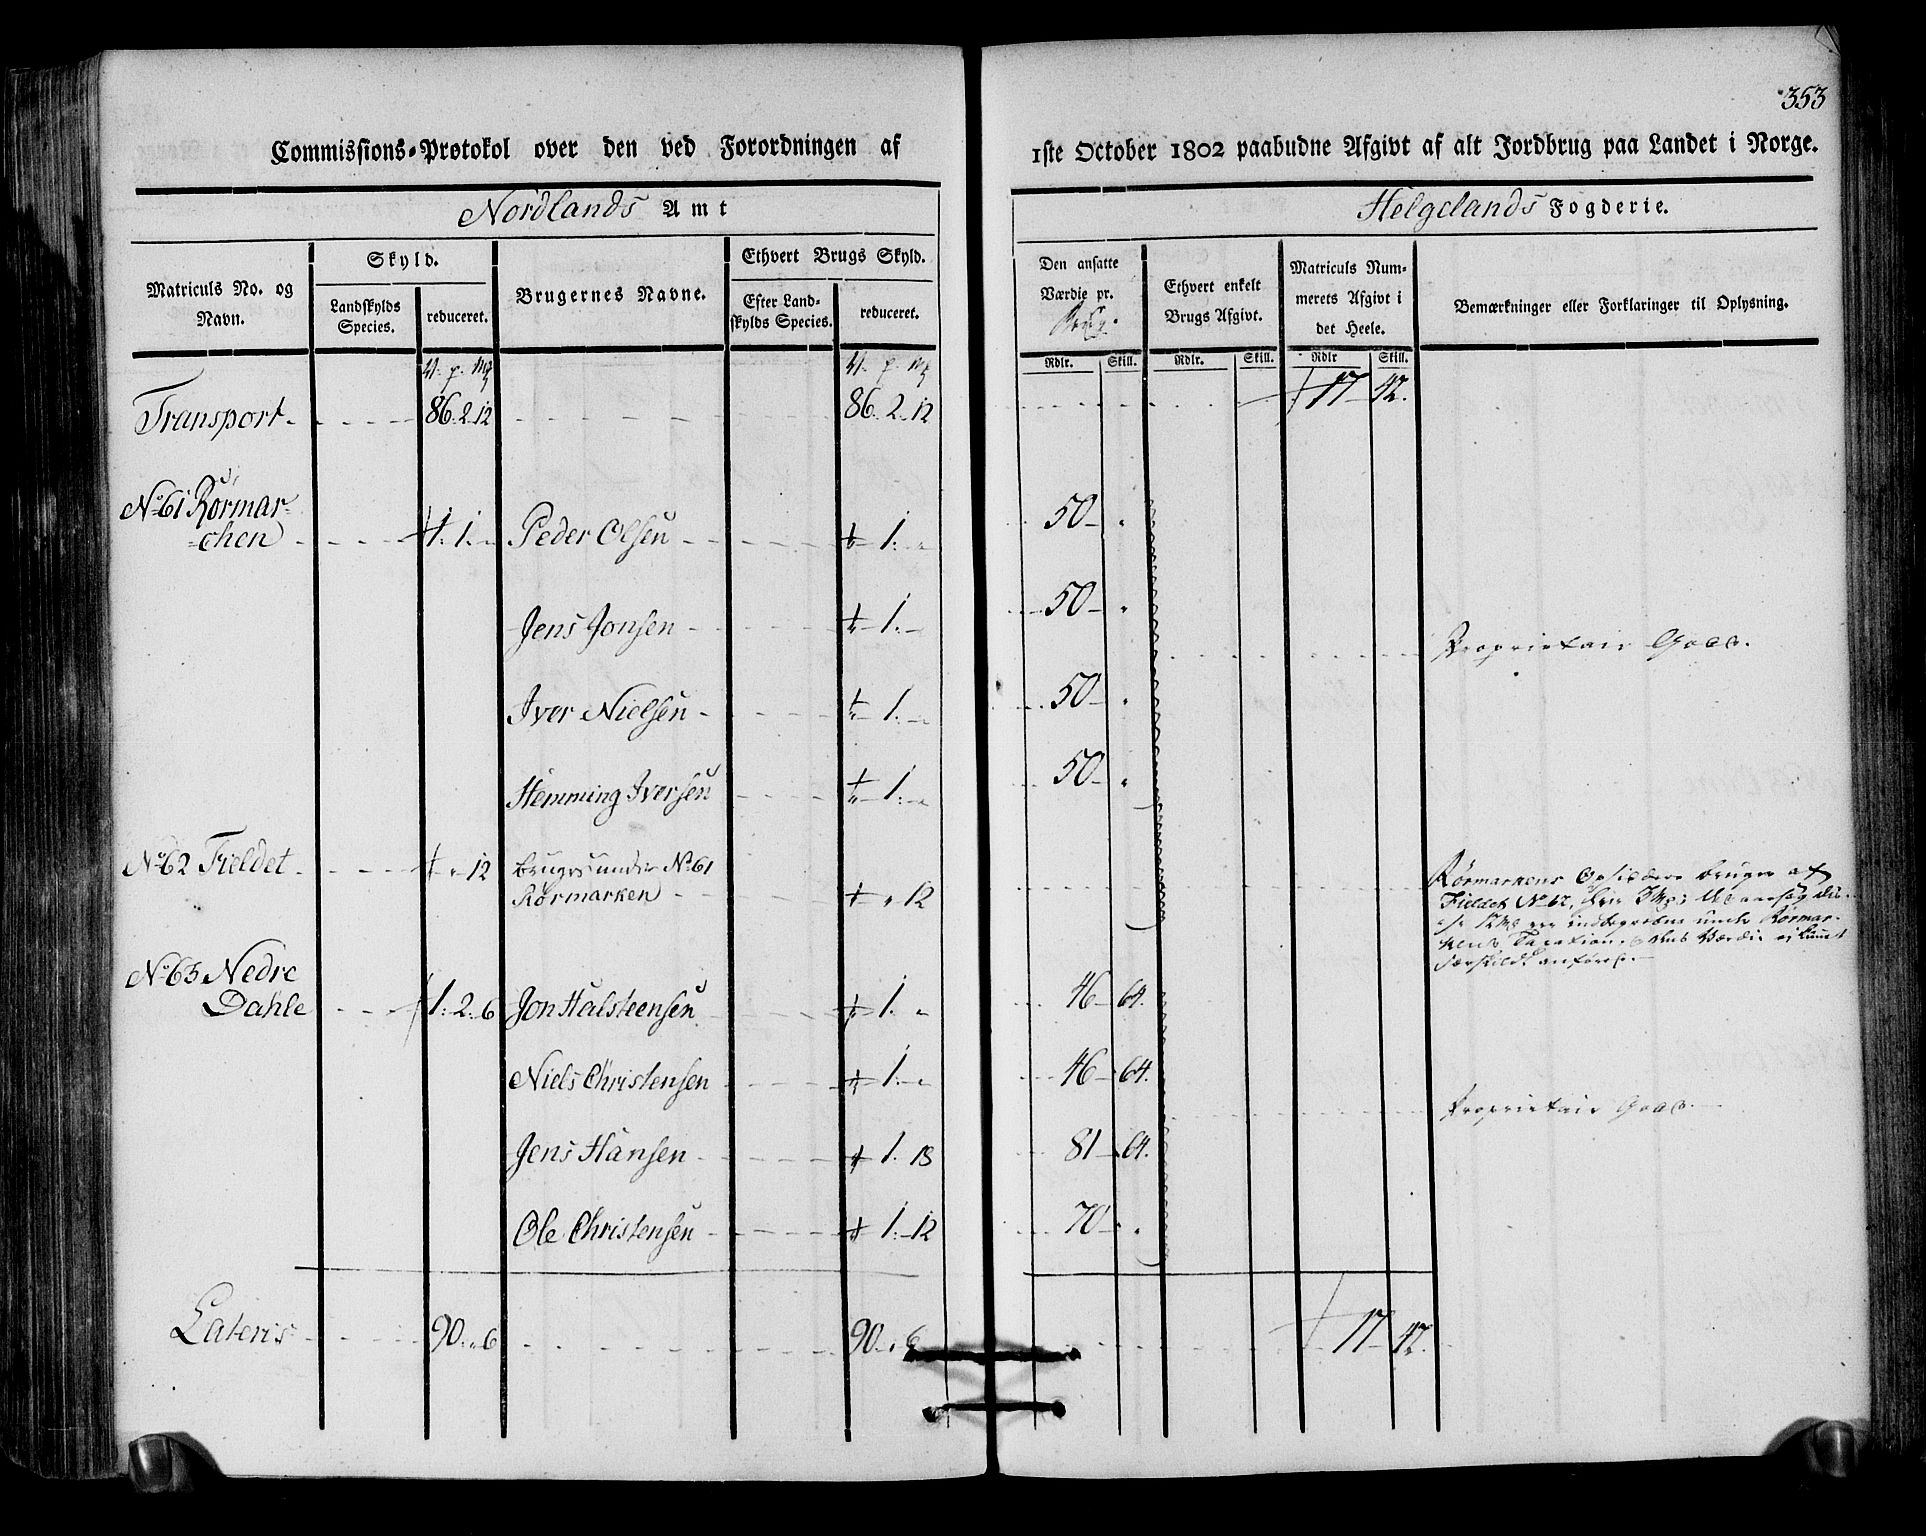 353
Commissions-Protokol over den ved Forordningen af 1ste October 1802 paabudne Afgivt af alt Jordbrug paa Landet i Norge.
Nordlands Amt
Helgelands Fogderie.
Matriculs No. og Navn.
Skyld.
Landskylds Species.
reduceret.
Brugernes Navne.
Ethvert Brugs Skyld.
Efter Landskylds Species.
reduceret.
Den ansatte Værdie pr.
Ethvert enkelt Brugs Afgivt.
Matriculs Nummerets Afgivt i det Heele.
Bemærkninger eller Forklaringer til Oplysning.
Rdlr. Skill. Rdlr. Skill. Rdlr Skill.
Transport 86. 2. 12 86. 2. 12 17 42.
No 61 Rörmar-
chen 1. Peder Olsen 1. 50
Jens Jonsen 1. 50
Proprietair Gods.
Iver Nielsen 1. 50
Hemming Iversen 1. 50
No 62 Fieldet 12 bruges under No 61
Rörmarken 12
Rørmarkens Opsiddere bruger af
Fieldet No 62,
indbegrebne under Rørmar-
kens Taxation, Værdie ei kunnet
særskildt anføres.
No 63 Nedre
Dahle 1. 2. 6 Jon Halsteensen 1. 46 64.
Niels Christensen 1. 46 64.
Proprietair Gods.
Jens Hansen 1. 18 81 64.
Ole Christensen 1. 12 70
Lateris 90. 6 90. 6 17 42.